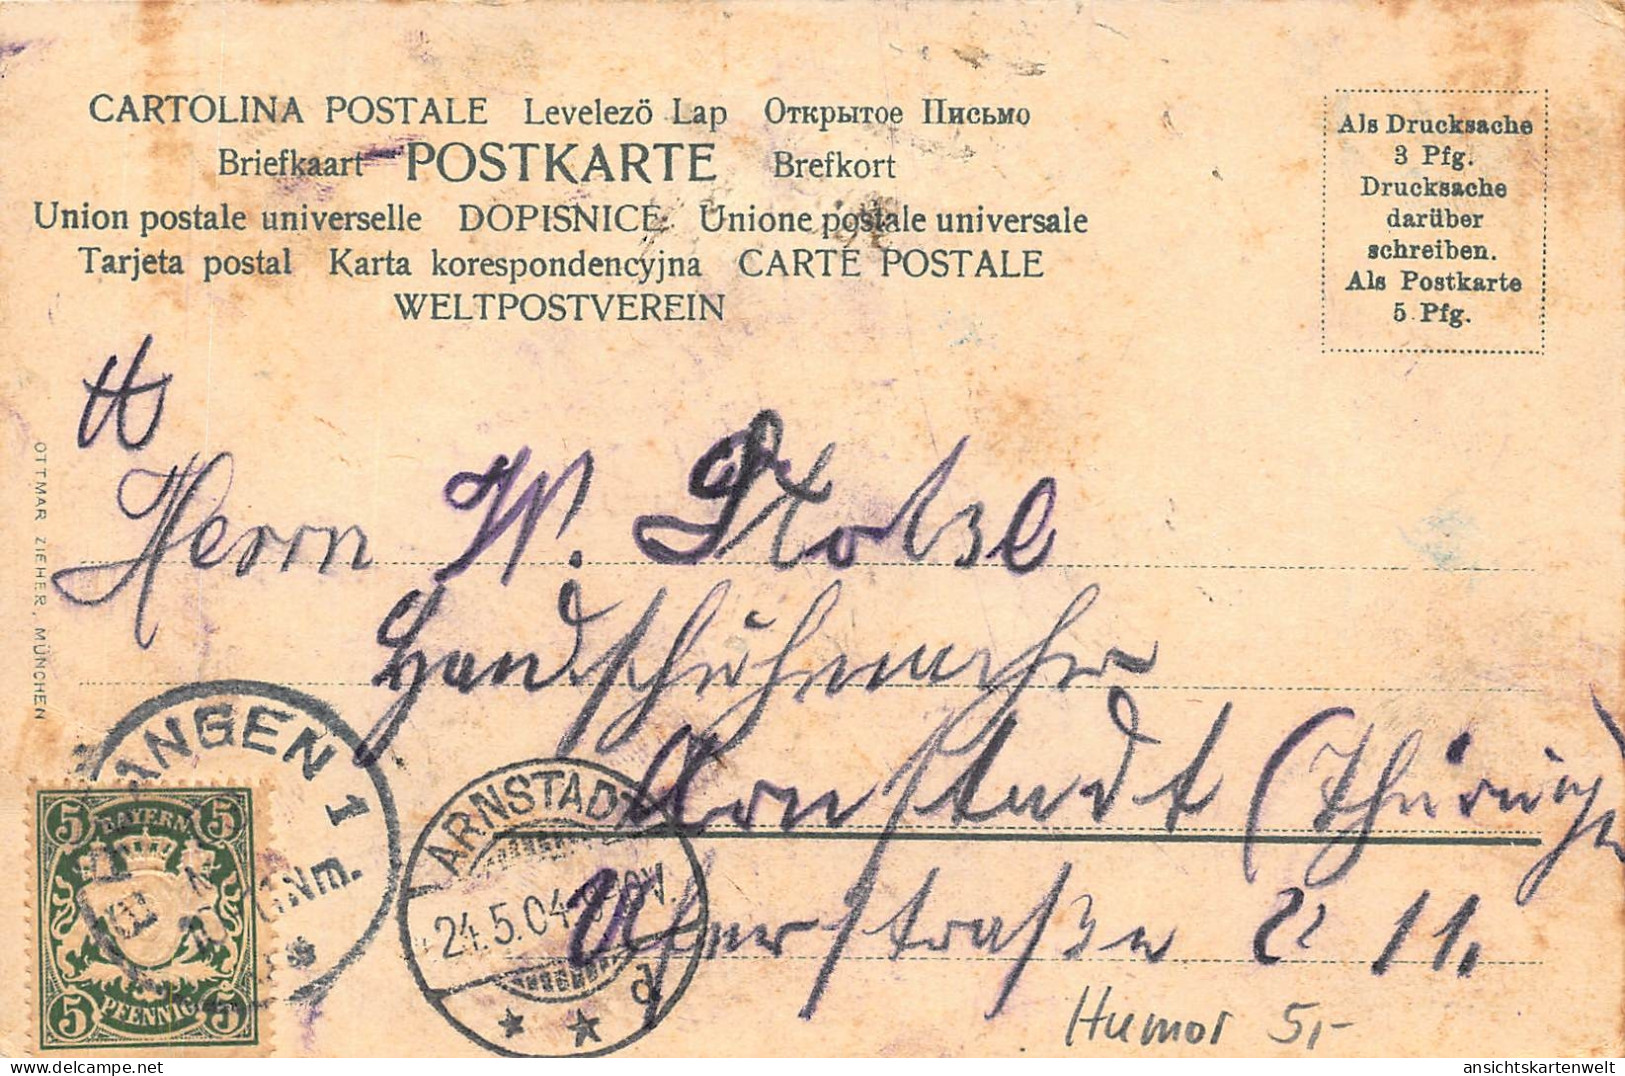 CARTOLINA POSTALE Levelező Lap Открытое Письмо
Briefkaart POSTKARTE Brefkort
Union postale universelle DOPISNICE Unione postale universale
Tarjeta postal Karta korespondencyjna CARTE POSTALE
WELTPOSTVEREIN
Als Drucksache
3 Pfg.
Drucksache
darüber
schreiben.
Als Postkarte
5 Pfg.
OTTMAR ZIEHER, MÜNCHEN
Herrn W. Stolze
Handschuhmacher
Arnstadt (Thüringen
Uferstraße 11.
ANGEN 1
Nm.
5 5
BAYERN
5 PFENNIG 5
ARNSTADT
24.5.04
V.
* * d
Humor 5,-
ansichtskartenwelt